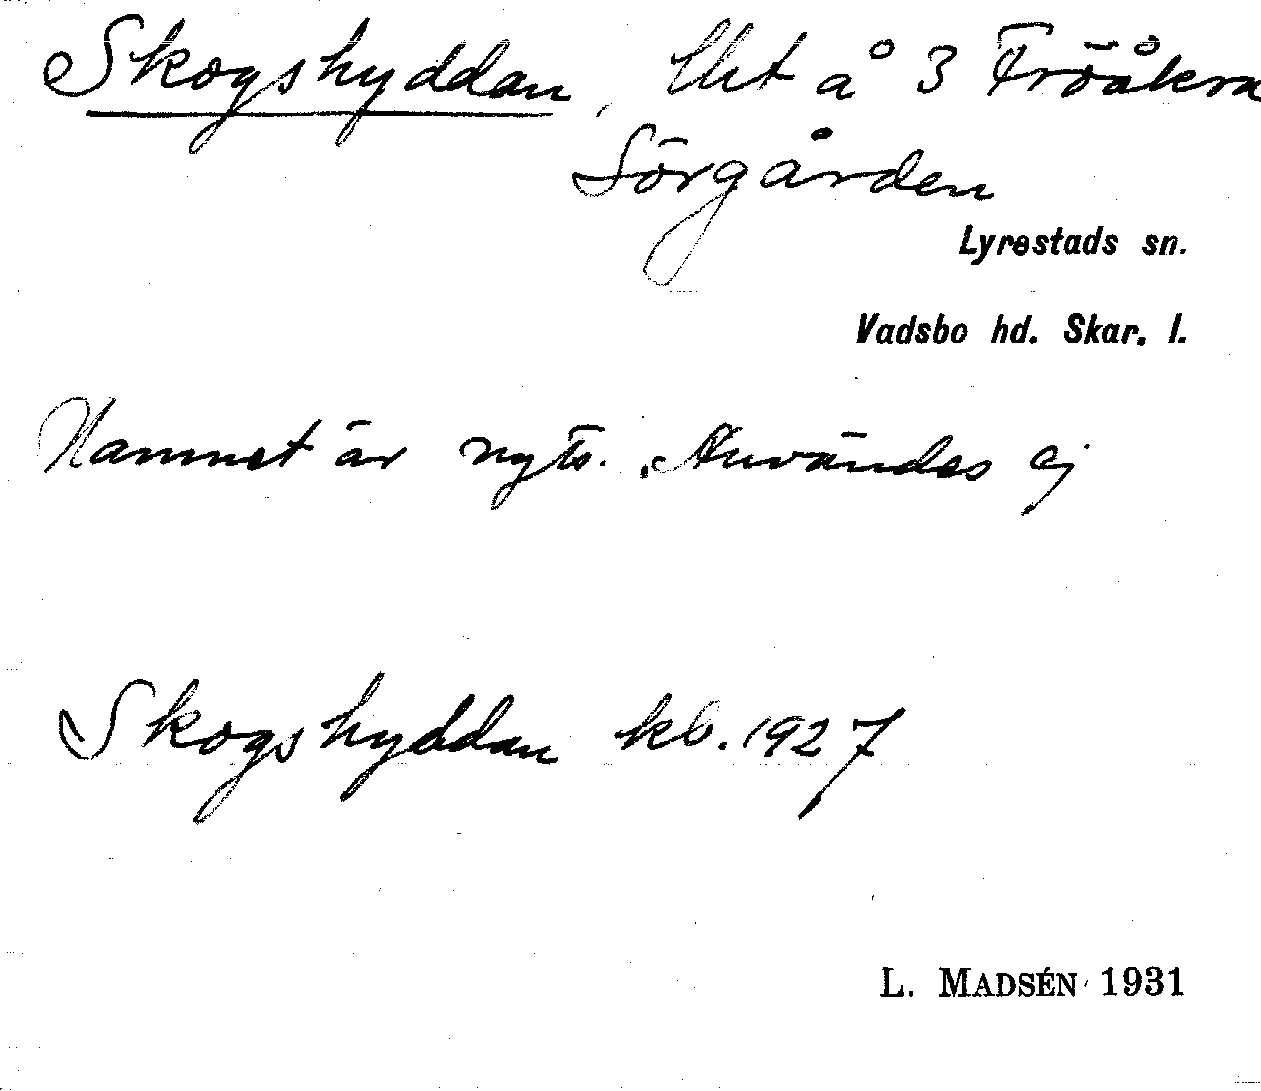 Skogshyddan, lht å 3 Fröåkra
Sörgården
Lyrestads sn.
Vadsbo hd. Skar. l.
Namnet är nytt. Användes ej
Skogshyddan kb. 1927
L. MADSÉN 1931